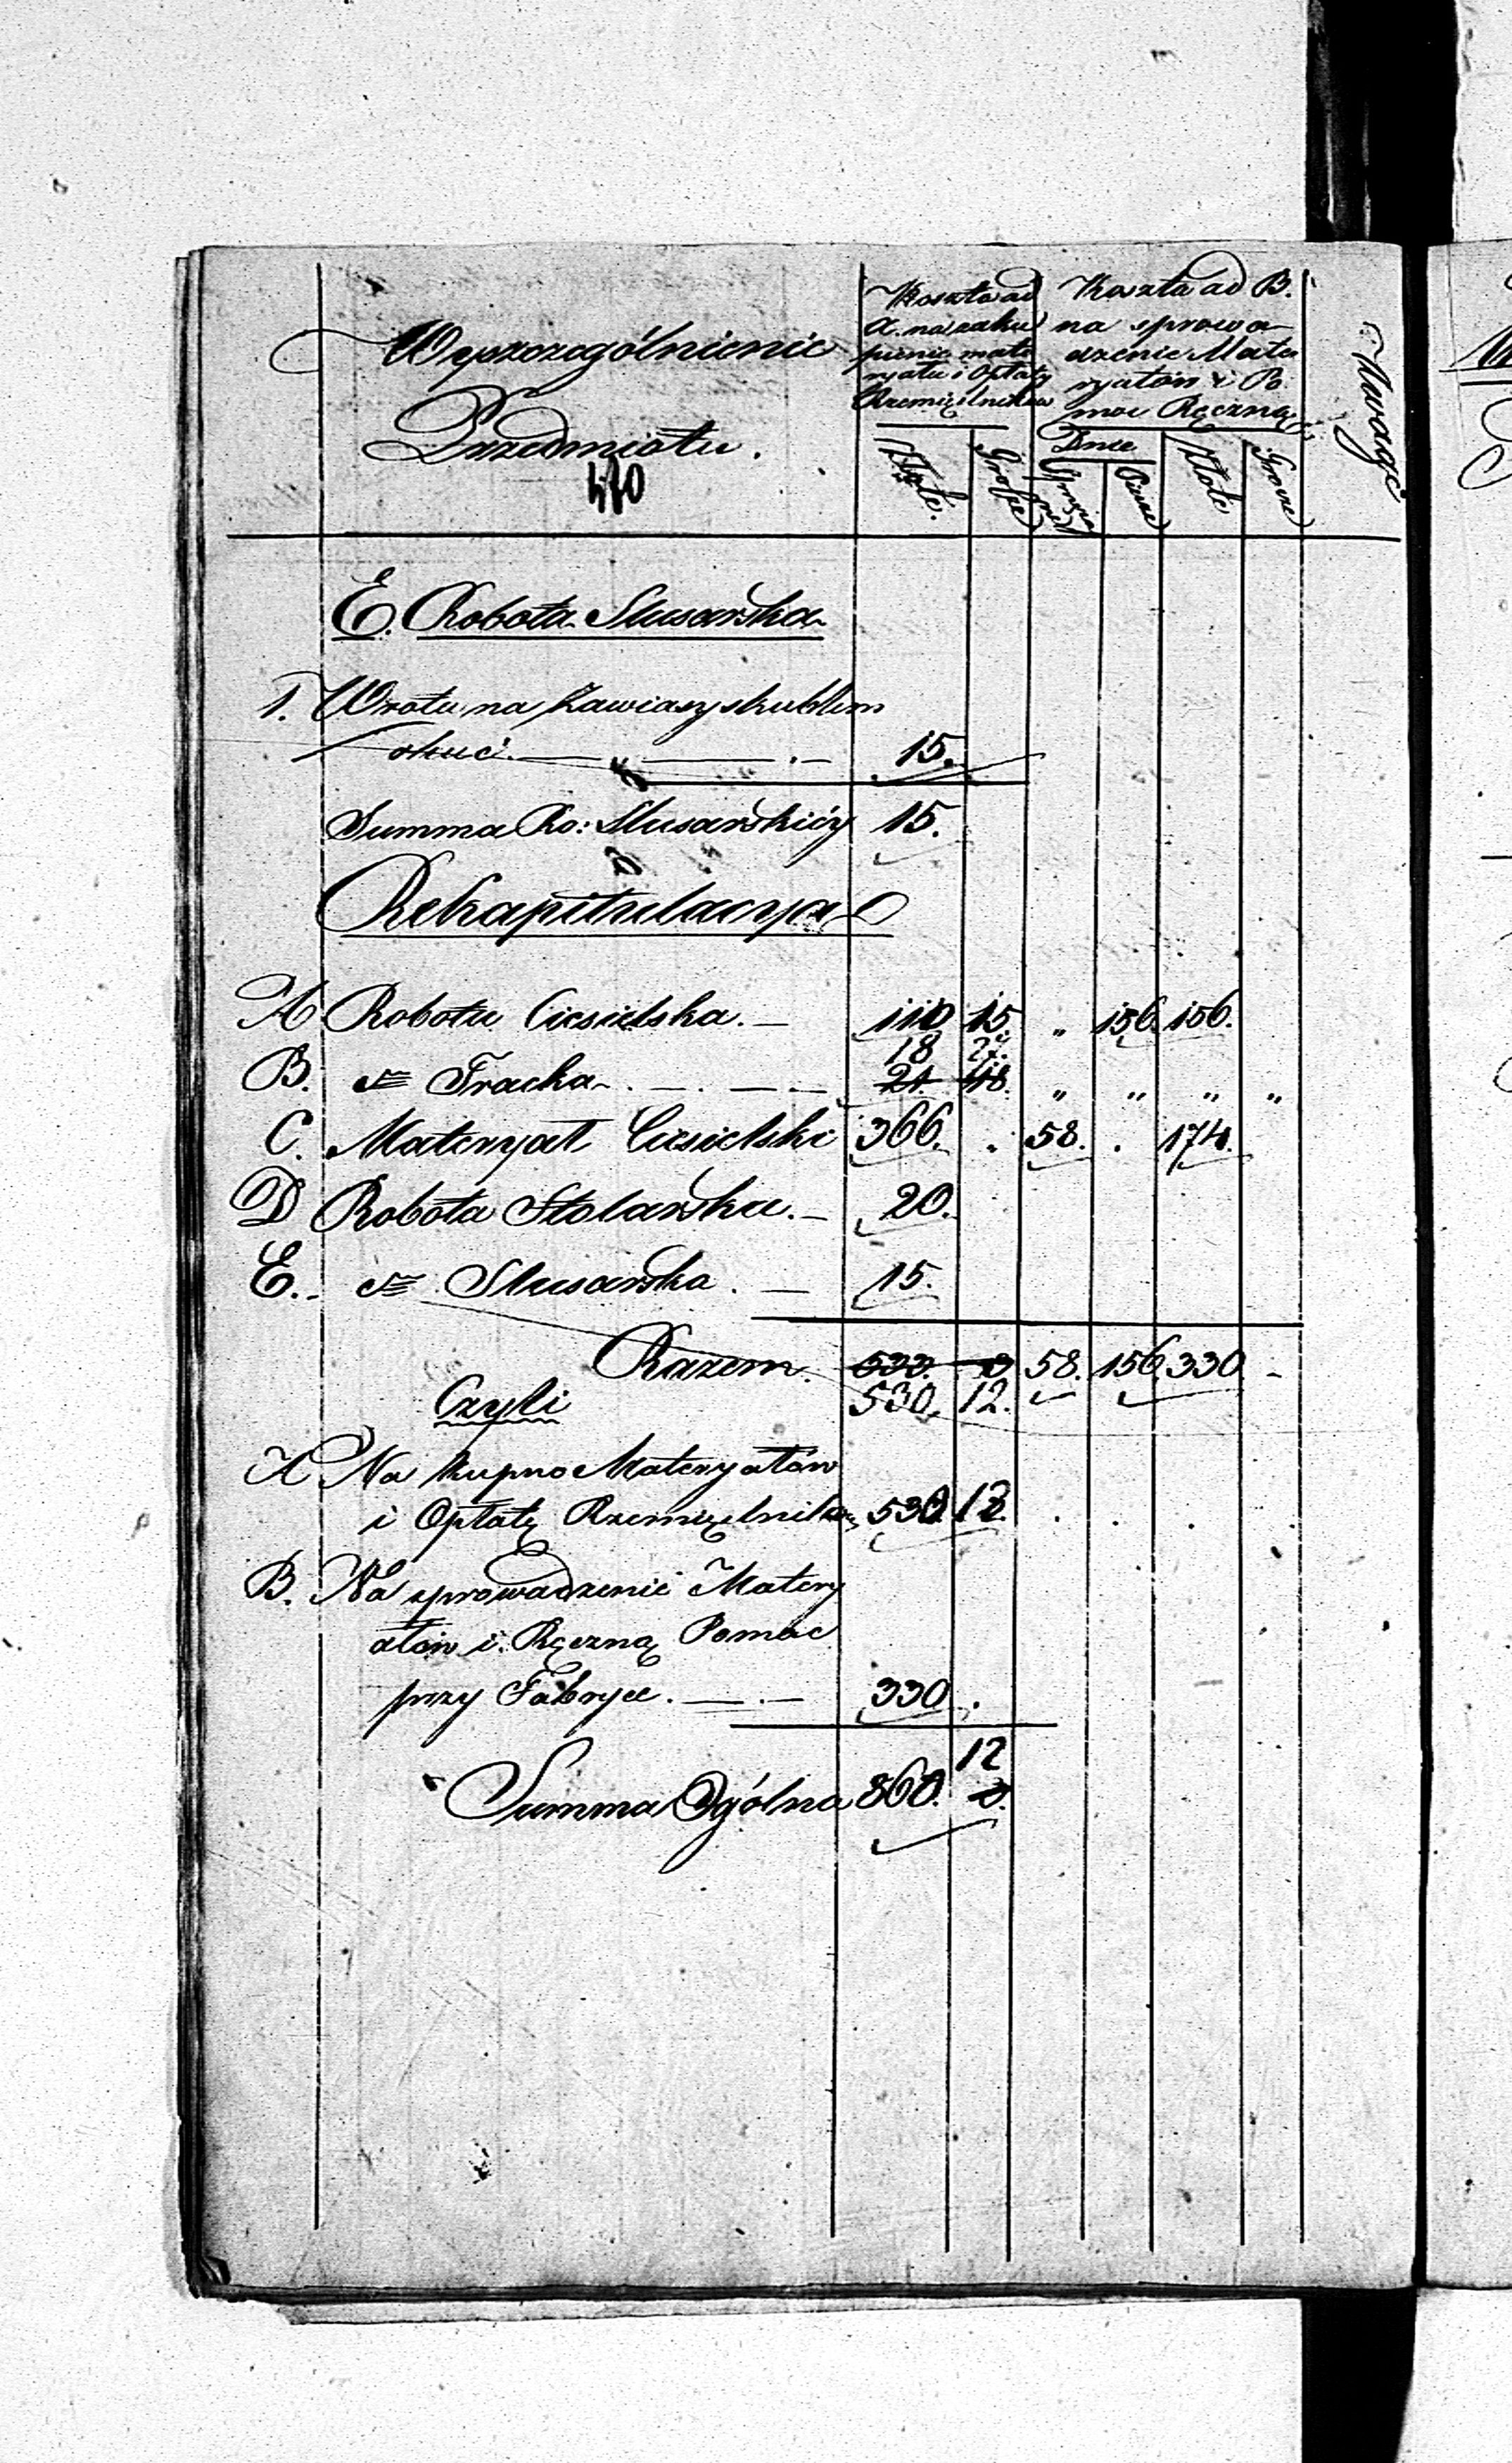 Wyszczególnienie
Przedmiotu.
470
Koszta ad
A. na zaku
pienie mate
ryału i Opłatę
Rzemieślników
Koszta ad B.
na sprowa
dzenie Mate
ryałów i Po
moc Ręczną
Uwagi
Dnie
Złote. Grosze Ciągłe Piesze Złote Grosze
E. Robota Slusarska
1. Wrota na Zawiasy skublem
okuć. — „ — . — 15.
Summa Ro: Slusarskiéy 15.
Rekapitulacya
A Robota Ciesielska. — 110 15. „ 156. 156.
18 27.
B. Tracka . — . — — 21. 18. „ „ „ „
C. Materyał Ciesielski 366. . 58. . 174.
D Robota Stolarska. — 20.
E. Slusarska . — 15.
Razem. 533. 3 58. 156 330 -
Czyli 530. 12.
A Na Kupno Materyałów
i Opłatę Rzemieślników 530 12. . . .
B. Na sprowadzenie Matery
ałów i Ręczną Pomoc
przy Fabryce. — . — 330 .
12
Summa Ogólna 860. 3.